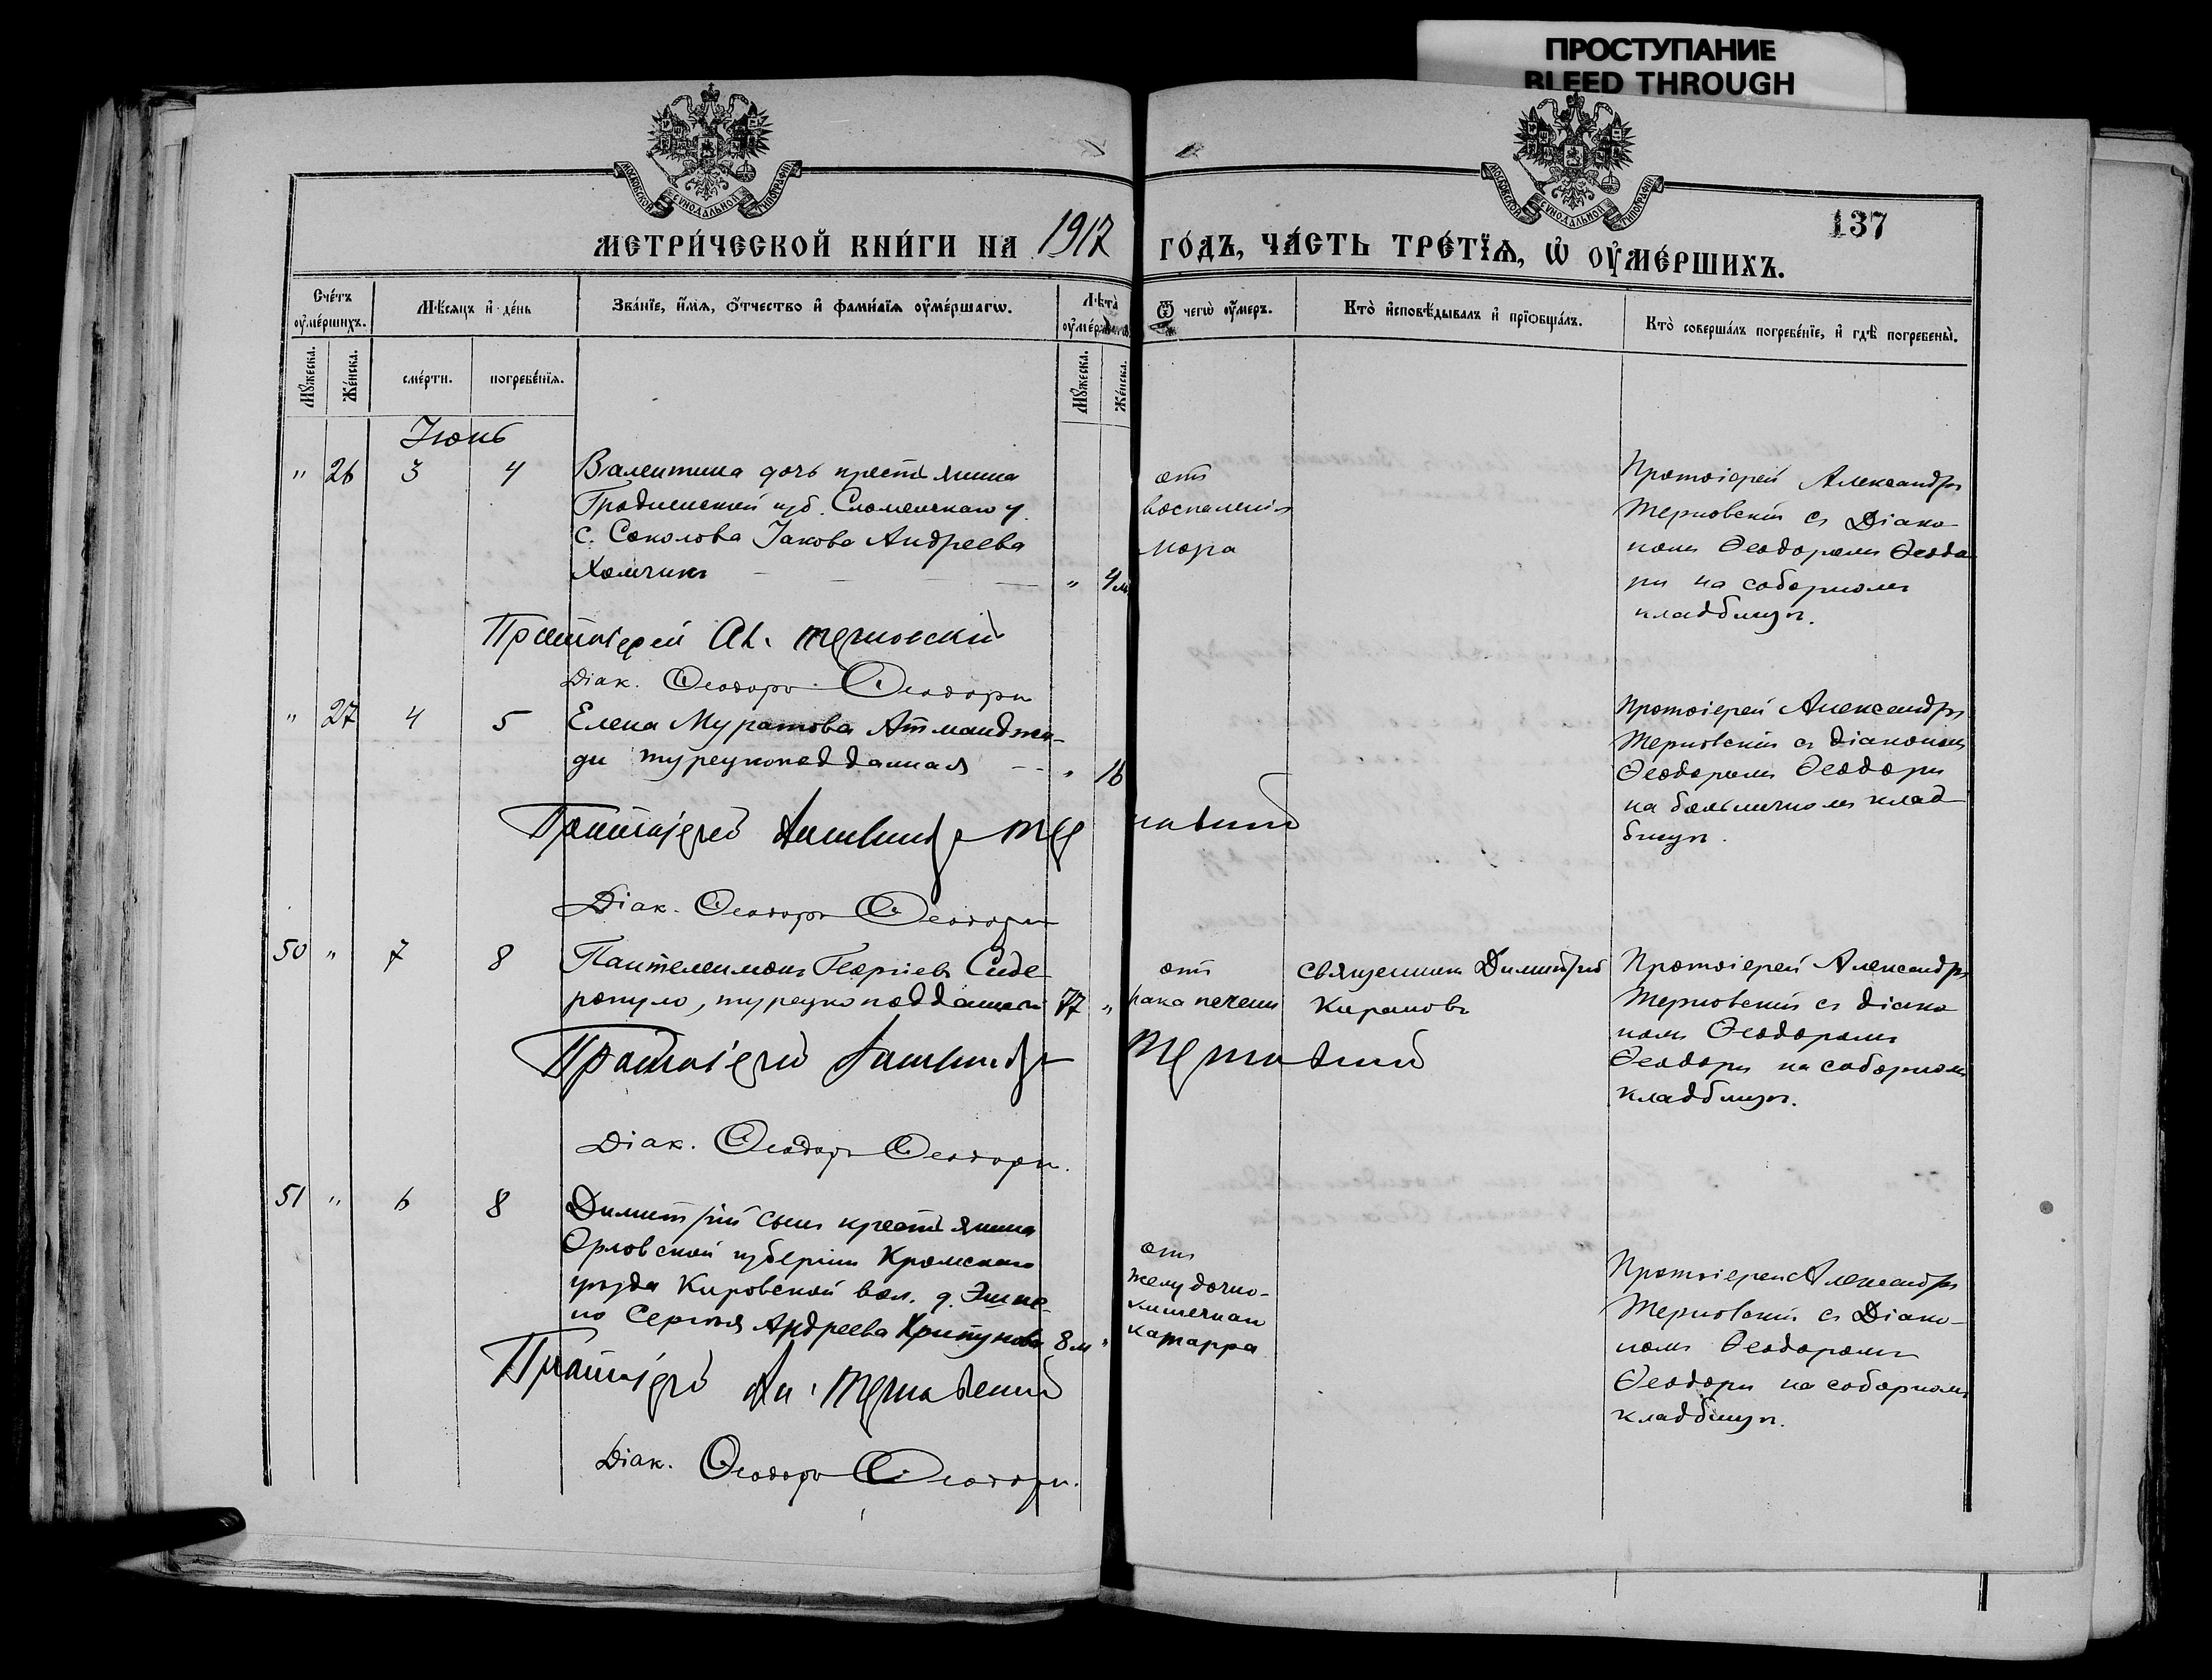 ПРОСТУПАНИЕ
BLEED THROUGH
МОСКОВСКОЙ СѴНОДАЛЬНОЙ ТИПОГРАФІИ
МОСКОВСКОЙ СѴНОДАЛЬНОЙ ТИПОГРАФІИ
137
МЕТРИ́ЧЕСКОЙ КНИ́ГИ НА 1917 ГО́ДЪ, ЧА́СТЬ ТРЕ́ТІѦ, Ѡ҆ ОУ҆МЕ́РШИХЪ.
Сче́тъ оу҆ме́ршихъ.
Мѣ́сяцъ и҆ де́нь
Зва́нїе, и҆́мѧ, ѻ҆́тчество и҆ фами́лїѧ оу҆ме́ршагѡ.
Лѣ́та оу҆ме́ршагѡ
Ѿ чегѡ̀ оу҆́меръ.
Кто̀ и҆сповѣ́дывалъ и҆ прїѻбща́лъ.
Кто̀ соверша́лъ погребе́нїе, и҆ гдѣ̀ погребены̀.
Мꙋ́жеска.
Же́нска.
сме́рти.
погребе́нїѧ.
Мꙋ́жеска.
Же́нска.
Іюнь
" 26 3 4 Валентина дочь крестьянина
Гродненской губ. Слонимскаго у.
с. Соколова Іакова Андреева
Хомчикъ " 4 м
отъ
воспаленія
мозга
Протоіерей Александръ
Терновскій съ Діако-
номъ Ѳеодоромъ Ѳеодо
ри на соборномъ
кладбищѣ.
Протоіерей Ал. Терновскій
Діак. Ѳеодоръ Ѳеодори
" 27 4 5 Елена Муратова Атманджи-
ди турецкоподданная " 16
Протоіерей Александръ
Терновскій съ діакономъ
Ѳеодоромъ Ѳеодори
на больничномъ клад
бищѣ.
Протоіерей Александръ Терновскій
Діак. Ѳеодоръ Ѳеодори
50 " 7 8 Пантелеимонъ Георгіевъ Сиде
ропуло, турецко подданный 77 "
отъ
рака печени
священникъ Димитрій
Кирановъ
Протоіерей Александръ
Терновскій съ діако
номъ Ѳеодоромъ
Ѳеодори на соборномъ
кладбищѣ.
Протоіерей Александръ Терновскій
Діак. Ѳеодоръ Ѳеодори.
51 " 6 8 Димитрій сынъ крестьянина
Орловской губерніи Кромскаго
уѣзда Кировской вол. д.
Сергѣя Андреева Хрипунова 8 м "
отъ
желудочно-
кишечнаго
катарра
Протоіерей Александръ
Терновскій съ Діако-
номъ Ѳеодоромъ
Ѳеодори на соборномъ
кладбищѣ.
Протоіерей Ал. Терновскій
Діак. Ѳеодоръ Ѳеодори.